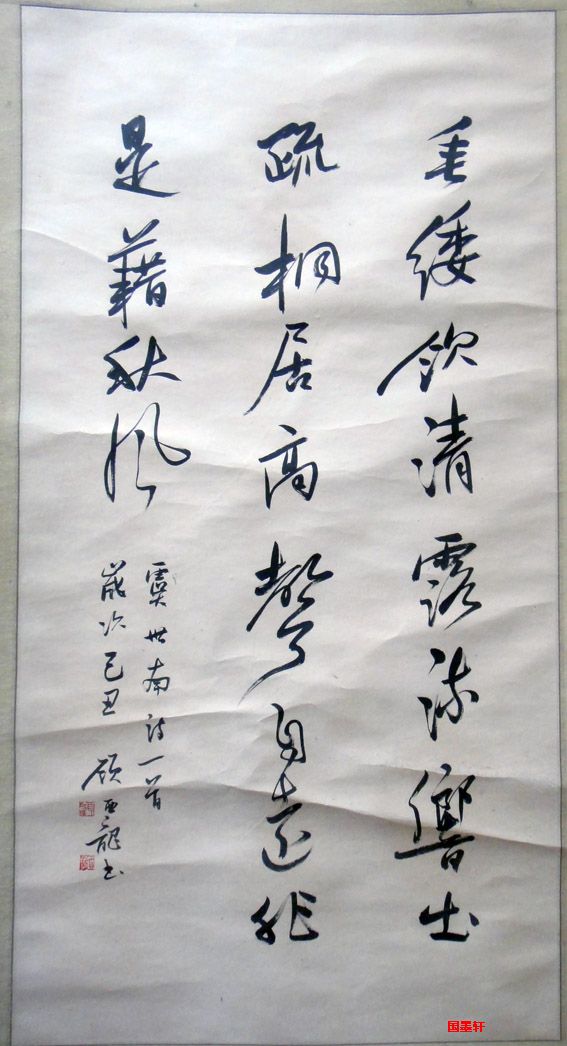 垂緌飲清露流響出
疏桐居高聲自遠非
是藉秋風
虞世南詩一首
歲次己丑 顧亞龍書
国墨轩